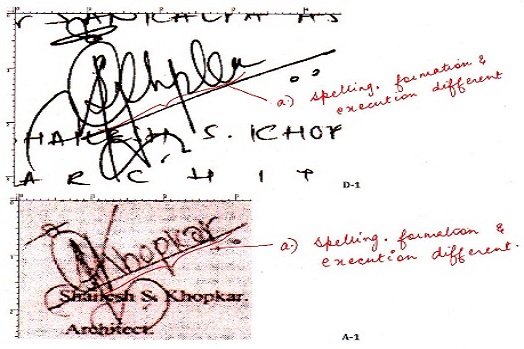 a.) spelling, formation &
execution different
HAILESH S. KHOP
A R C H I T
D-1
Khopkar
a.) spelling, formation &
execution different.
Shailesh S. Khopkar.
Architect.
A-1